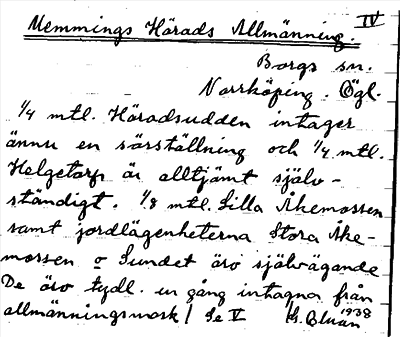 IV
Memmings Härads Allmänning.
Borgs sn.
Norrköping. Ögl.
1/4 mtl. Häradsudden intager
ännu en särställning och 1/4 mtl.
Helgetorp är alltjämt själv-
ständigt. 1/8 mtl. Lilla Åkemossen
samt jordlägenheterna Stora Åke-
mossen o Sundet äro självägande
De äro tydl. en gång intagna från
allmänningsmark / Se V
1938